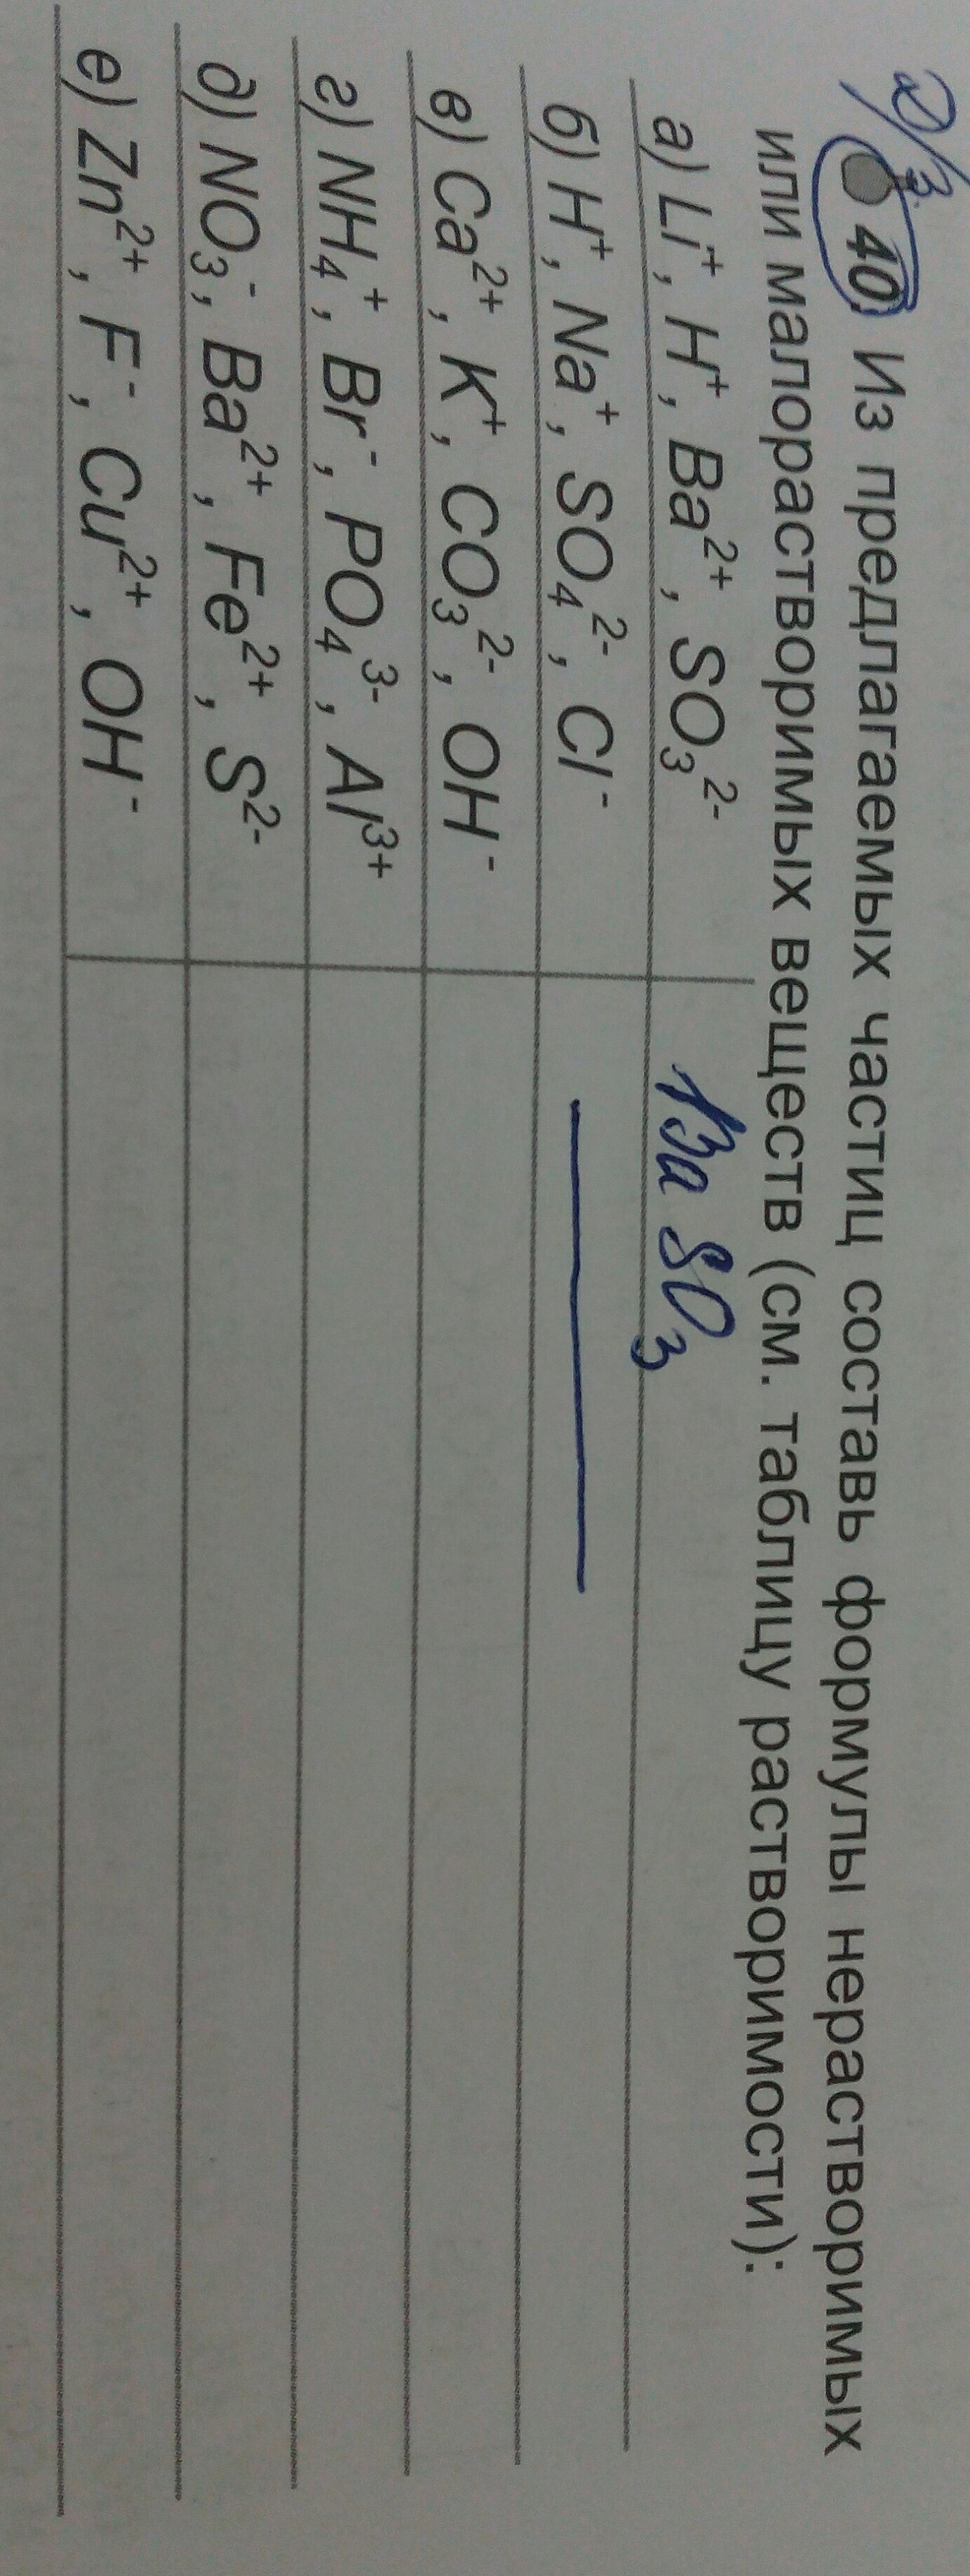 Д/з
40. Из предлагаемых частиц составь формулы нерастворимых
или малорастворимых веществ (см. таблицу растворимости):
а) Li⁺, H⁺, Ba²⁺, SO₃²⁻ BaSO₃
б) H⁺, Na⁺, SO₄²⁻, Cl⁻
в) Ca²⁺, K⁺, CO₃²⁻, OH⁻
г) NH₄⁺, Br⁻, PO₄³⁻, Al³⁺
д) NO₃⁻, Ba²⁺, Fe²⁺, S²⁻
е) Zn²⁺, F⁻, Cu²⁺, OH⁻